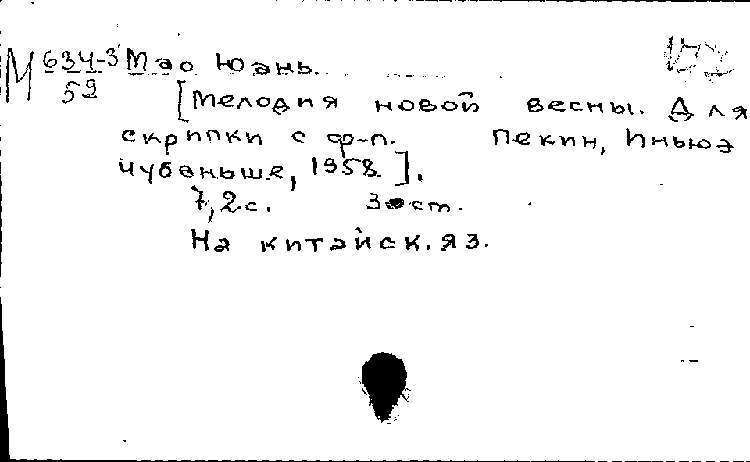 М 634-3 Мао Юань.
59
[Мелодия новой весны. Для
скрипки с ф-п. Пекин, Иньюэ
чубаньше, 1958].
7, 2 с.
На китайск. яз.